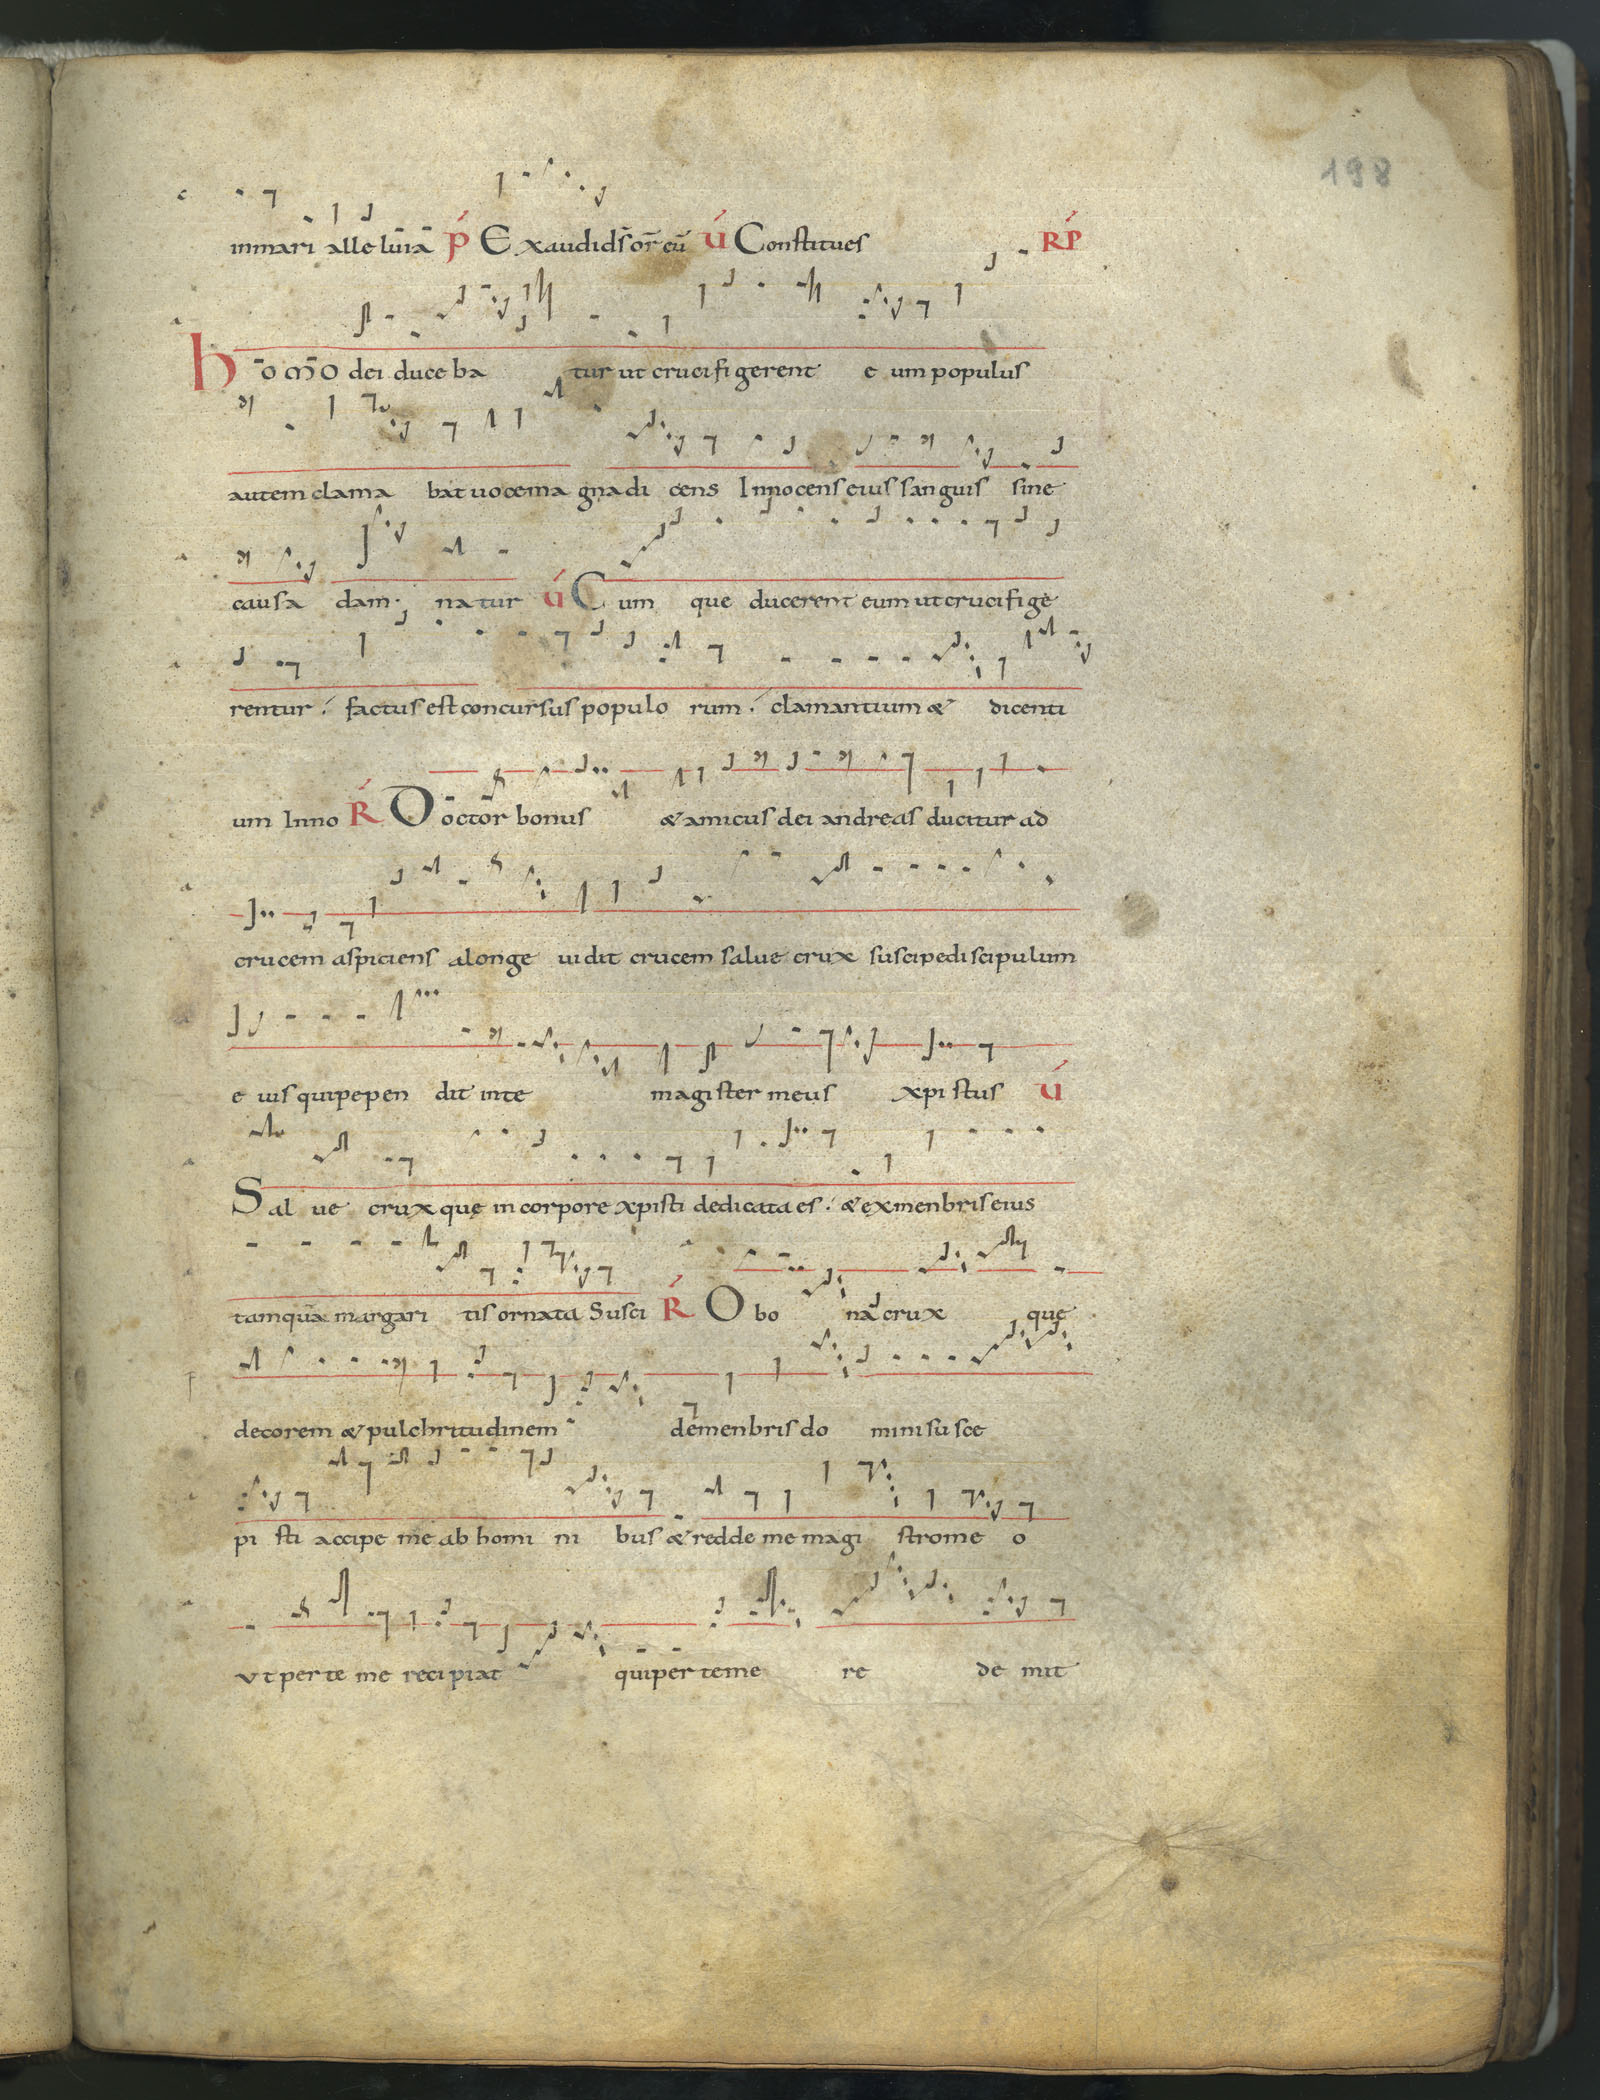 198
inmari alle luiā ṕ Exaudi ds̄ or̄ eū ú Constitues RṔ
hōmō dei duce ba tur ut crucifigerent e um populus
autem clama bat uocema gnadi cens Innocens eius sanguis sine
causa dam natur ú Cum que ducerent eum ut crucifige
rentur. factus est concursus populo rum. clamantium & dicenti
um Inno Ŕ Doctor bonus & amicus dei andreas ducitur ad
crucem aspiciens alonge uidit crucem salue crux suscipe discipulum
e ius qui pepen dit inte magister meus xpi stus ú
Sal ue crux que in corpore xpisti dedicata es. & ex menbris eius
tamquā margari tis ornata Susci Ŕ O bo na crux que
decorem & pulchritudinem de menbris do mini su sce
pi sti accipe me ab homi ni bus & redde me magi stro me o
ut per te me recipiat qui per te me re de mit